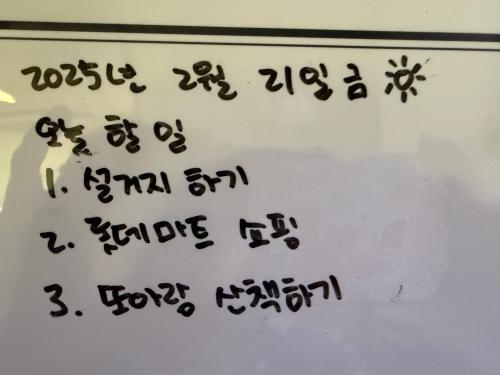 2025년 2월 21일 금
오늘 할 일
1. 설거지 하기
2. 롯데마트 쇼핑
3. 또아랑 산책하기